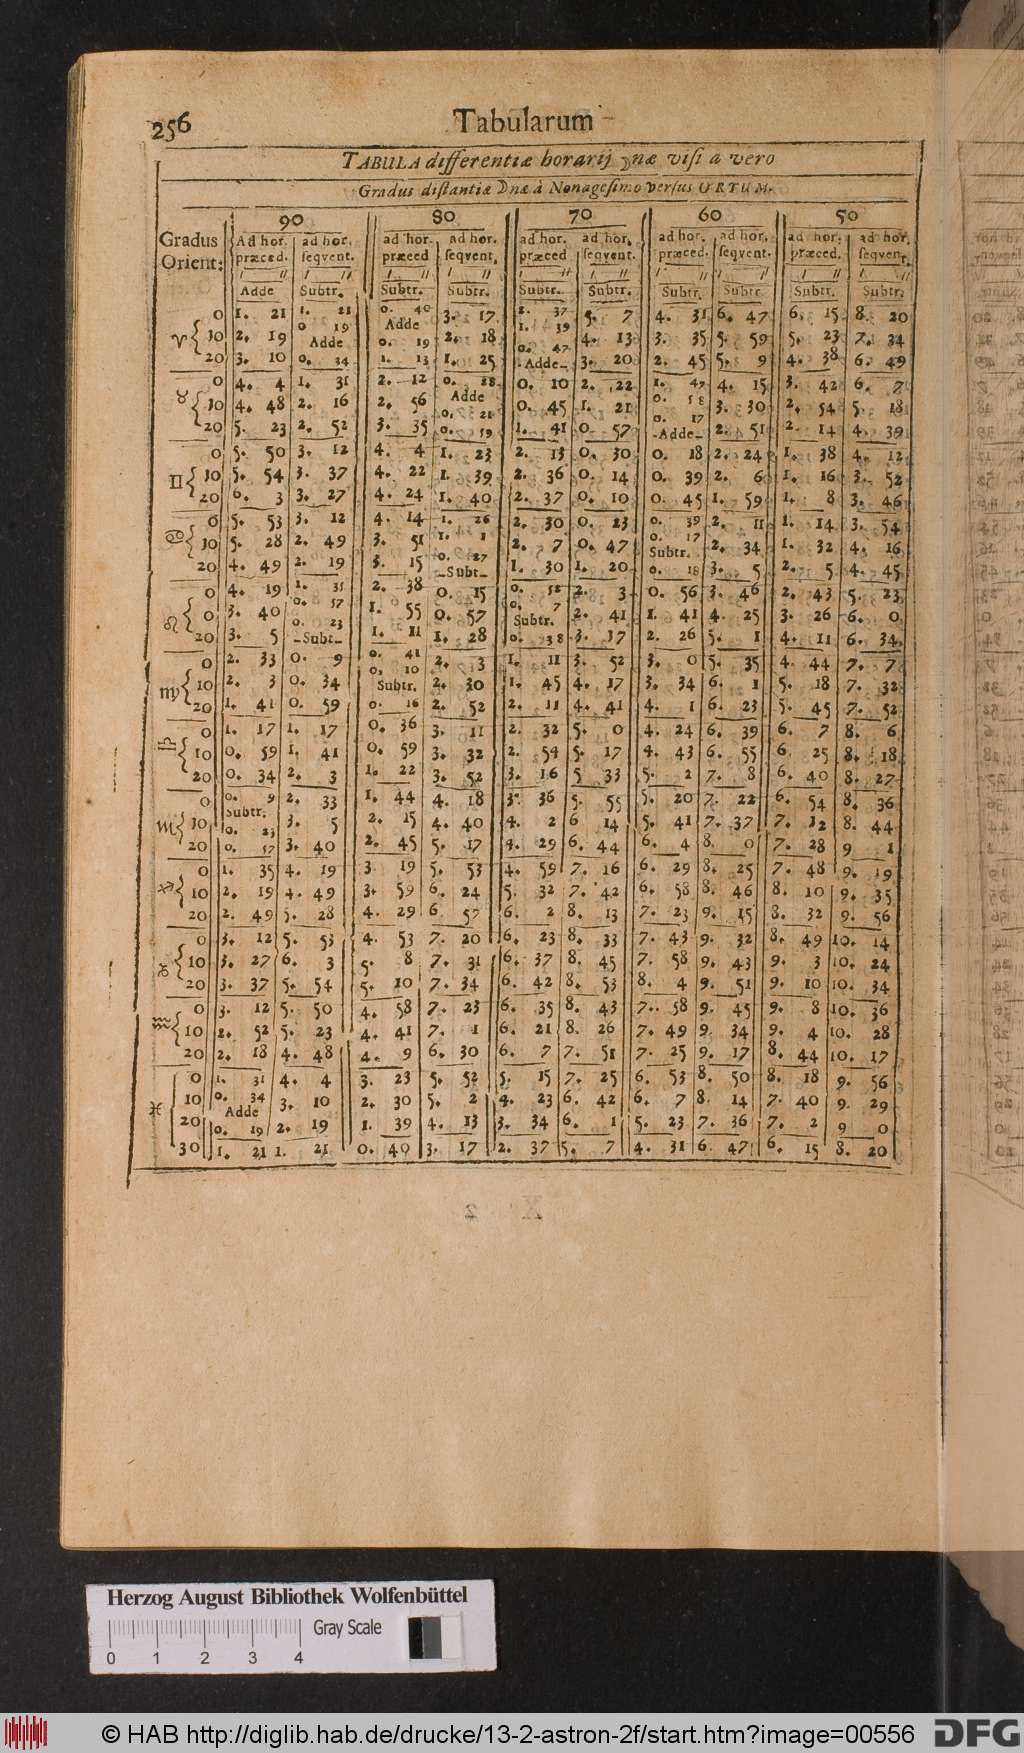 256 Tabularum
TABULA differentiæ horarij ☽næ visi a vero
Gradus distantiæ ☽næ à Nonagesimo versus ORTUM.
Gradus Orient: 90 80 70 60 50
Ad hor. præced. ad hor. seqvent. ad hor. præced ad hor. seqvent, ad hor. præced ad hor. seqvent. ad hor. præced. ad hor. seqvent. ad hor. præced. ad hor. seqvent,
Adde Subtr. Subtr. Subtr. Subtr. Subtr. Subtr. Subtr. Subtr. Subtr.
♈ 0 1. 21 1. 21 0. 40 3. 17 2. 37 5. 7 4. 31 6. 47 6. 15 8. 20
10 2. 19 0 19 Adde 0. 19 2. 18 1. 39 4. 13 3. 35 5. 59 5. 23 7. 34
20 3. 10 Adde 0. 34 1. 13 1. 25 0. 47 Adde 3. 20 2. 45 5. 9 4. 38 6. 49
♉ 0 4. 4 1. 31 2. 12 0. 28 0. 10 2. 22 1. 47 4. 15 3. 42 6. 7
10 4. 48 2. 16 2. 56 Adde 0. 21 0. 45 1. 21 0. 58 3. 30 2. 54 5. 18
20 5. 23 2. 52 3. 35 0. 59 1. 41 0. 57 0. 17 Adde 2. 51 2. 14 4. 39
♊ 0 5. 50 3. 12 4. 4 1. 23 2. 13 0. 30 0. 18 2. 24 1. 38 4. 12
10 5. 54 3. 37 4. 22 1. 39 2. 36 0. 14 0. 39 2. 6 1. 16 3. 52
20 6. 3 3. 27 4. 24 1. 40 2. 37 0. 10 0. 45 1. 59 1. 8 3. 46
♋ 0 5. 53 3. 12 4. 14 1. 26 2. 30 0. 23 0. 39 2. 11 1. 14 3. 54
10 5. 28 2. 49 3. 51 1. 1 2. 7 0. 47 0. 17 Subtr. 2. 34 1. 32 4. 16
20 4. 49 2. 19 3. 15 0. 27 Subt 1. 30 1. 20 0. 18 3. 5 2. 5 4. 45
♌ 0 4. 19 1. 35 2. 38 0. 15 0. 52 2. 3 0. 56 3. 46 2. 43 5. 23
0 3. 40 0. 57 1. 55 0. 57 0. 7 Subtr. 2. 41 1. 41 4. 25 3. 26 6. 0
20 3. 5 0. 23 Subt 1. 11 1. 28 0. 38 3. 17 2. 26 5. 1 4. 11 6. 34
♍ 0 2. 33 0. 9 0. 41 2. 3 1. 11 3. 52 3. 0 5. 35 4. 44 7. 7
10 2. 3 0. 34 0. 10 Subtr. 2. 30 1. 45 4. 17 3. 34 6. 1 5. 18 7. 32
20 1. 41 0. 59 0. 16 2. 52 2. 11 4. 41 4. 1 6. 23 5. 45 7. 52
♎ 0 1. 17 1. 17 0. 36 3. 11 2. 32 5. 0 4. 24 6. 39 6. 7 8. 6
10 0. 59 1. 41 0. 59 3. 32 2. 54 5. 17 4. 43 6. 55 6. 25 8. 18
20 0. 34 2. 3 1. 22 3. 52 3. 16 5 33 5. 2 7. 8 6. 40 8. 27
♏ 0 0. 9 2. 33 1. 44 4. 18 3. 36 5. 55 5. 20 7. 22 6. 54 8. 36
10 Subtr. 0. 23 3. 5 2. 15 4. 40 4. 2 6 14 5. 41 7. 37 7. 12 8. 44
20 0. 57 3. 40 2. 45 5. 17 4. 29 6. 44 6. 4 8. 0 7. 28 9 1
♐ 0 1. 35 4. 19 3. 19 5. 53 4. 59 7. 16 6. 29 8. 25 7. 48 9. 19
10 2. 19 4. 49 3. 59 6. 24 5. 32 7. 42 6. 58 8. 46 8. 10 9. 35
20 2. 49 5. 28 4. 29 6. 57 6. 2 8. 13 7. 23 9. 15 8. 32 9. 56
♑ 0 3. 12 5. 53 4. 53 7. 20 6. 23 8. 33 7. 43 9. 32 8. 49 10. 14
10 3. 27 6. 3 5. 8 7. 31 6. 37 8. 45 7. 58 9. 43 9. 3 10. 24
20 3. 37 5. 54 5. 10 7. 34 6. 42 8. 53 8. 4 9. 51 9. 10 10. 34
♒ 0 3. 12 5. 50 4. 58 7. 23 6. 35 8. 43 7. 58 9. 45 9. 8 10. 36
10 2. 52 5. 23 4. 41 7. 1 6. 21 8. 26 7. 49 9. 34 9. 4 10. 28
20 2. 18 4. 48 4. 9 6. 30 6. 7 7. 51 7. 25 9. 17 8. 44 10. 17
♓ 0 1. 31 4. 4 3. 23 5. 52 5. 15 7. 25 6. 53 8. 50 8. 18 9. 56
10 0. 34 Adde 3. 10 2. 30 5. 2 4. 23 6. 42 6. 7 8. 14 7. 40 9. 29
20 0. 19 2. 19 1. 39 4. 13 3. 34 6. 1 5. 23 7. 36 7. 2 9 0
30 1. 21 1. 21 0. 40 3. 17 2. 37 5. 7 4. 31 6. 47 6. 15 8. 20
Herzog August Bibliothek Wolfenbüttel
Gray Scale
0 1 2 3 4
© HAB http://diglib.hab.de/drucke/13-2-astron-2f/start.htm?image=00556 DFG